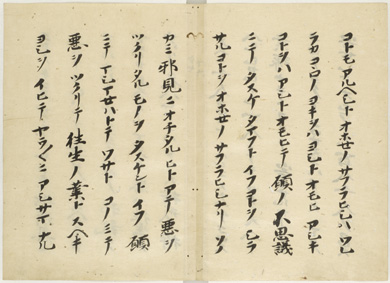 コトモアルヘシトオホセノサフラヒシハワレ
ラカコヽロノヨキヲハヨシトオモヒアシキ
コトヲハアシトオモヒテ願ノ不思議
ニテタスケタマフトイフコトヲシラ
サルコトヲオホセノサフラヒシナリソノ
カミ邪見ニオチタルヒトアテ悪ヲ
ツクリタルモノヲタスケントイフ願
ニテマシマセハトテワサトコノミテ
悪ヲツクリテ往生ノ業トスヘキ
ヨシヲイヒテヤウ〱ニアシサマナル